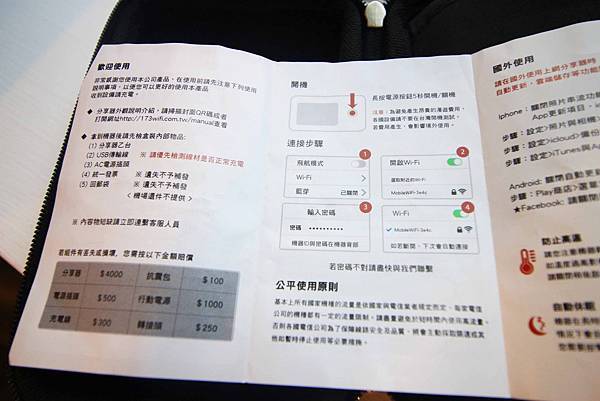 歡迎使用
非常感謝您使用本公司產品，在使用前請先注意下列使用
說明事項，以便您可以更好的使用本產品
收到設備請充電。
◆ 分享器外觀說明介紹，請掃描封面QR碼或者
打開網址http://173wifi.com.tw/manual查看
◆ 拿到機器後請先檢查裝內部物品:
(1) 分享器乙台
(2) USB傳輸線 ※ 請優先檢測線材是否正常充電
(3) AC電源插頭
(4) 統一發票 ※ 遺失不予補發
(5) 回郵袋 ※ 遺失不予補發
< 機場還件不提供 >
※ 內容物如缺請立即連繫客服人員
若組件有丟失或損壞，您需按以下金額賠償
分享器 $4000 抗震包 $100
電源插頭 $500 行動電源 $1000
充電線 $300 轉接頭 $250
開機
長按電源按鈕5秒開機/關機
連接步驟
飛航模式 1
Wi-Fi
藍芽 已關閉
開啟Wi-Fi 2
選取附近的Wi-Fi
MobileWiFi-3e4c
輸入密碼 3
密碼 ••••••••••
機器ID與密碼在機器背部
Wi-Fi 4
✓ MobileWiFi-3e4c
如若斷開，下次會自動連接
若密碼不對請盡快與我們聯繫
公平使用原則
基本上所有國家機種的流量是依國家與電信業者規定而定，每家電信
公司的機種都有一定的流量限制，請盡量避免於短時間內使用高流量，
否則各國電信公司為了保障線路安全及品質，將會主動採取限速或其
他如暫時停止使用等必要措施。
國外使用
請在國外使用上網分享器時
自動更新，雲端儲存等功能
Iphone: 關閉照片串流功能
App更新項目，
步驟：設定>照片與相機
步驟：設定>icloud>備份
步驟：設定>iTunes與Ap
Android: 關閉自動更新
步驟：Play商店>選單
★Facebook: 請關閉
防止高溫
自動休眠